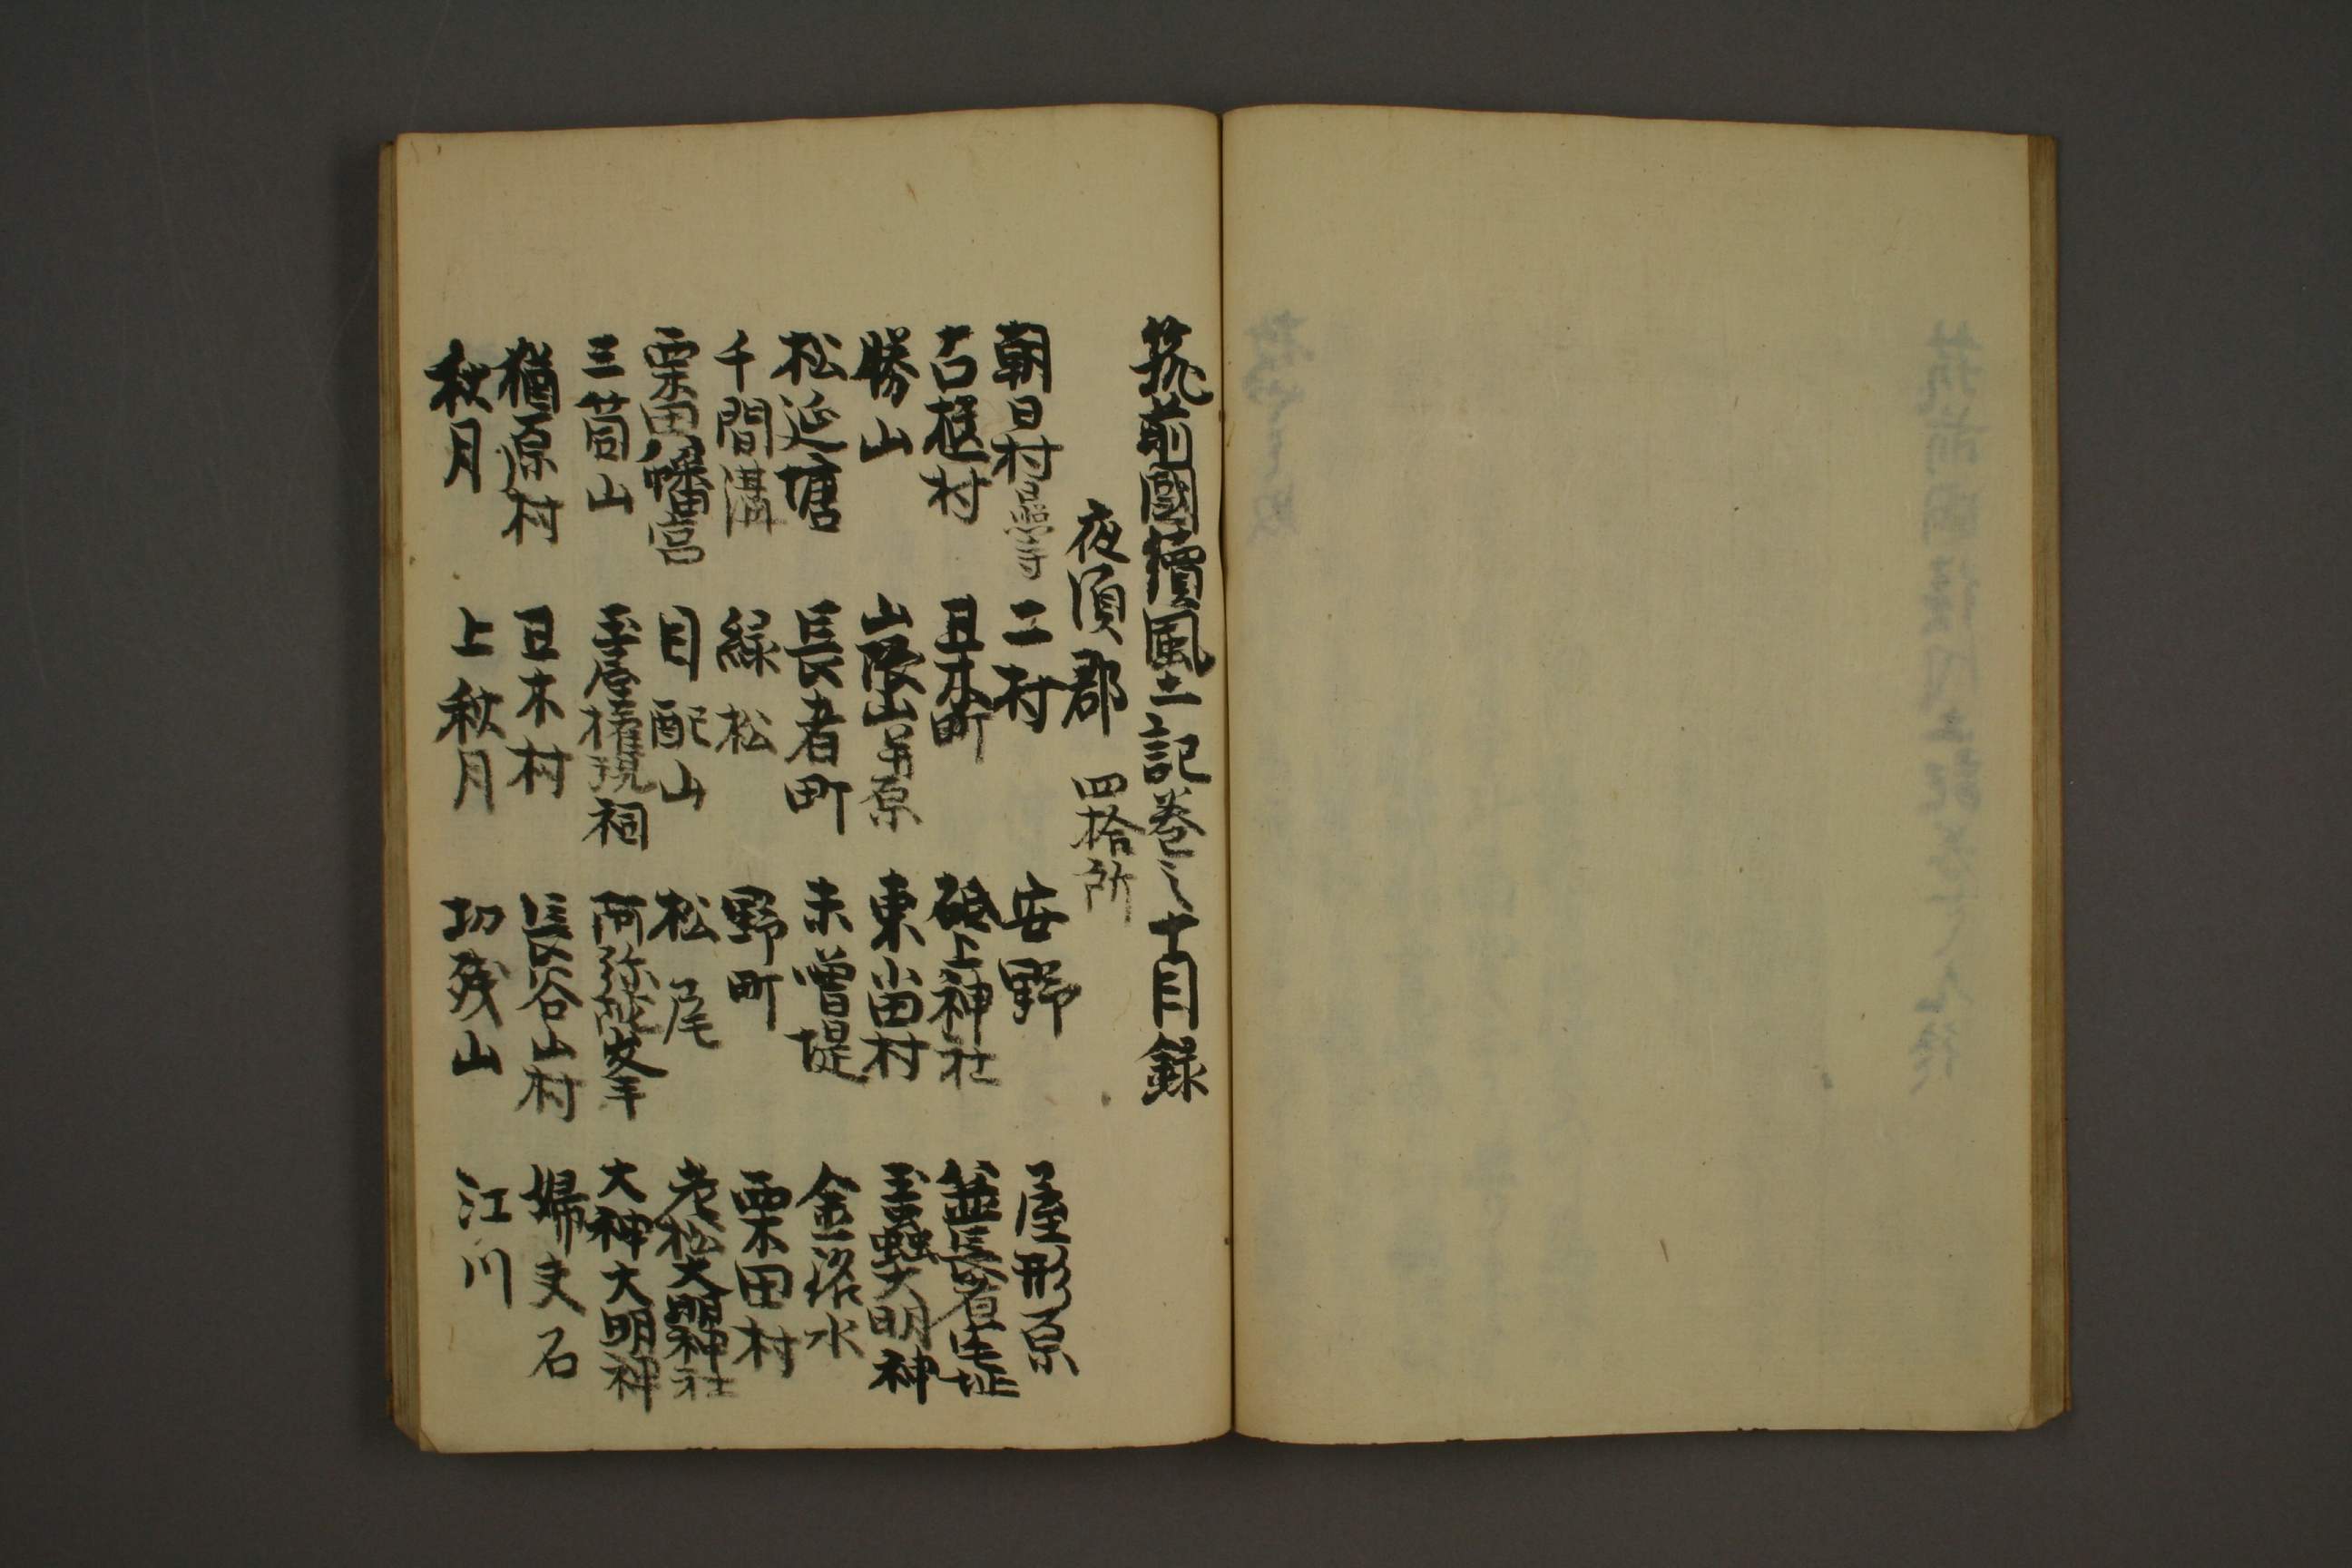 筑前國續風土記巻之十目録
夜須郡 四拾所
朝日村日照寺 二村 安野 屋形原
古柩村 且木町 砥上神社 並長者宅址
勝山 山隈山弟原 東小田村 玉蟲大明神
松延塘 長者町 未曽堤 金洛水
千間溝 緑松 野町 栗田村
栗田八幡宮 目配山 松尾 老松大明神社
三箇山 玉居權現祠 阿弥陀峯 大神大明神
楢原村 日木村 長谷山村 婦夫石
秋月 上秋月 切残山 江川